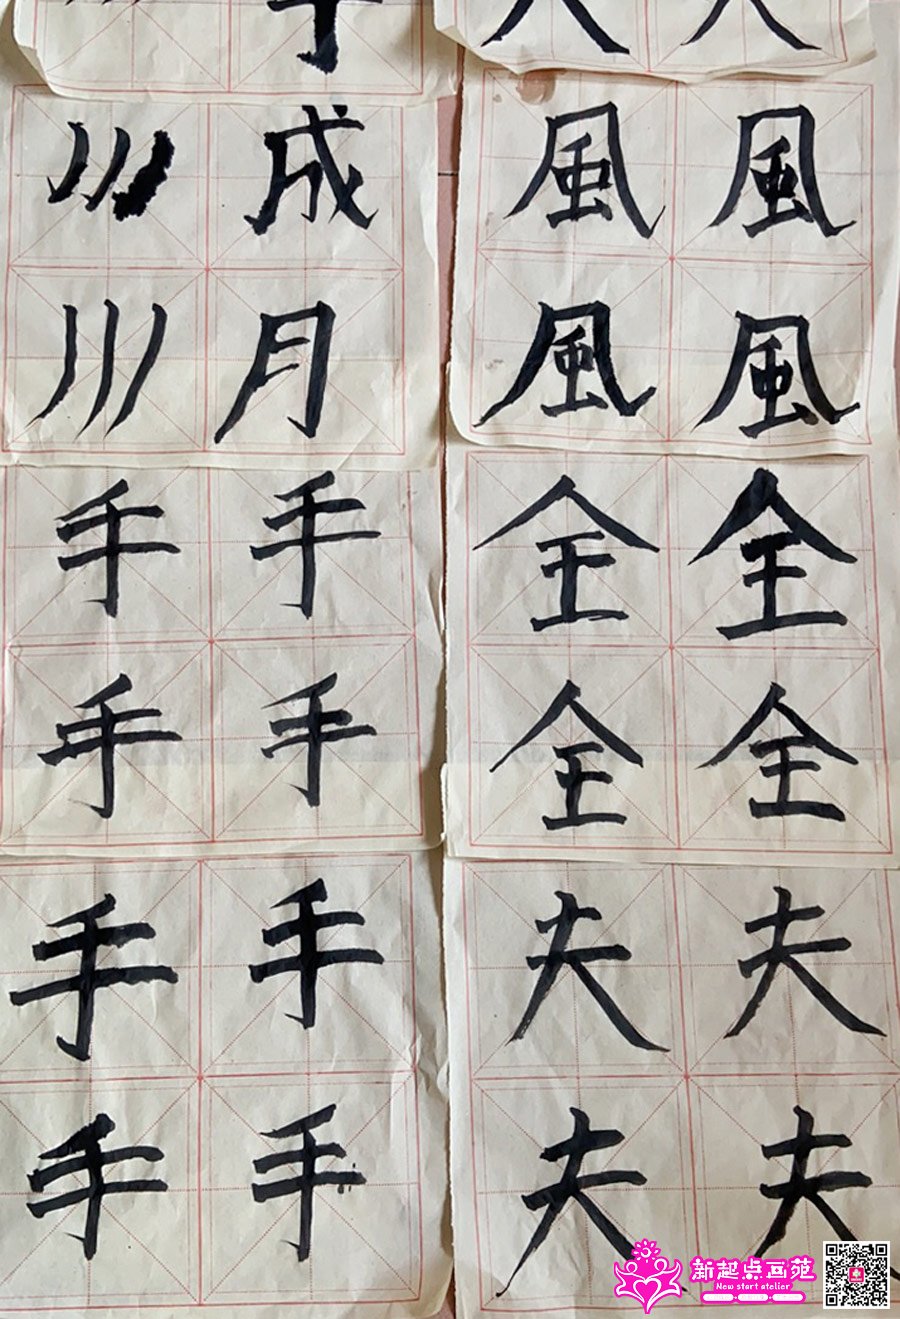 手 夫 夫
川 成 風 風
川 月 風 風
手 手 全 全
手 手 全 全
手 手 夫 夫
手 手 夫 夫
新起点画苑
New start atelier